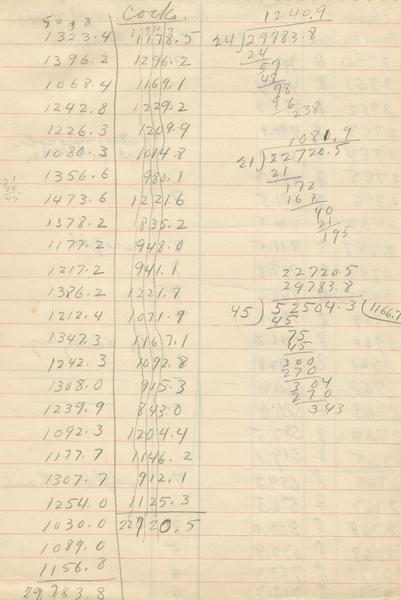 Cocks.
5 0 3 8
1323.4 1178.5
1396.2 1296.2
1068.4 1169.1
1242.8 1229.2
1226.3 1209.9
1080.3 1014.8
1356.6 980.1
1473.6 1221.6
1378.2 835.2
1177.2 948.0
1217.2 941.1
1386.2 1221.7
1212.4 1071.9
1347.3 1167.1
1242.3 1092.8
1308.0 915.3
1239.9 843.0
1092.3 1204.4
1177.7 1146.2
1307.7 912.1
1254.0 1125.3
1030.0 22720.5
1089.0
1156.8
29783.8
21
24
45
1240.9
24)29783.8
24
57
48
98
96
238
1081.9
21)22720.5
21
172
168
40
21
195
22720.5
29783.8
45)52504.3(1166.7
45
75
45
300
270
304
270
343